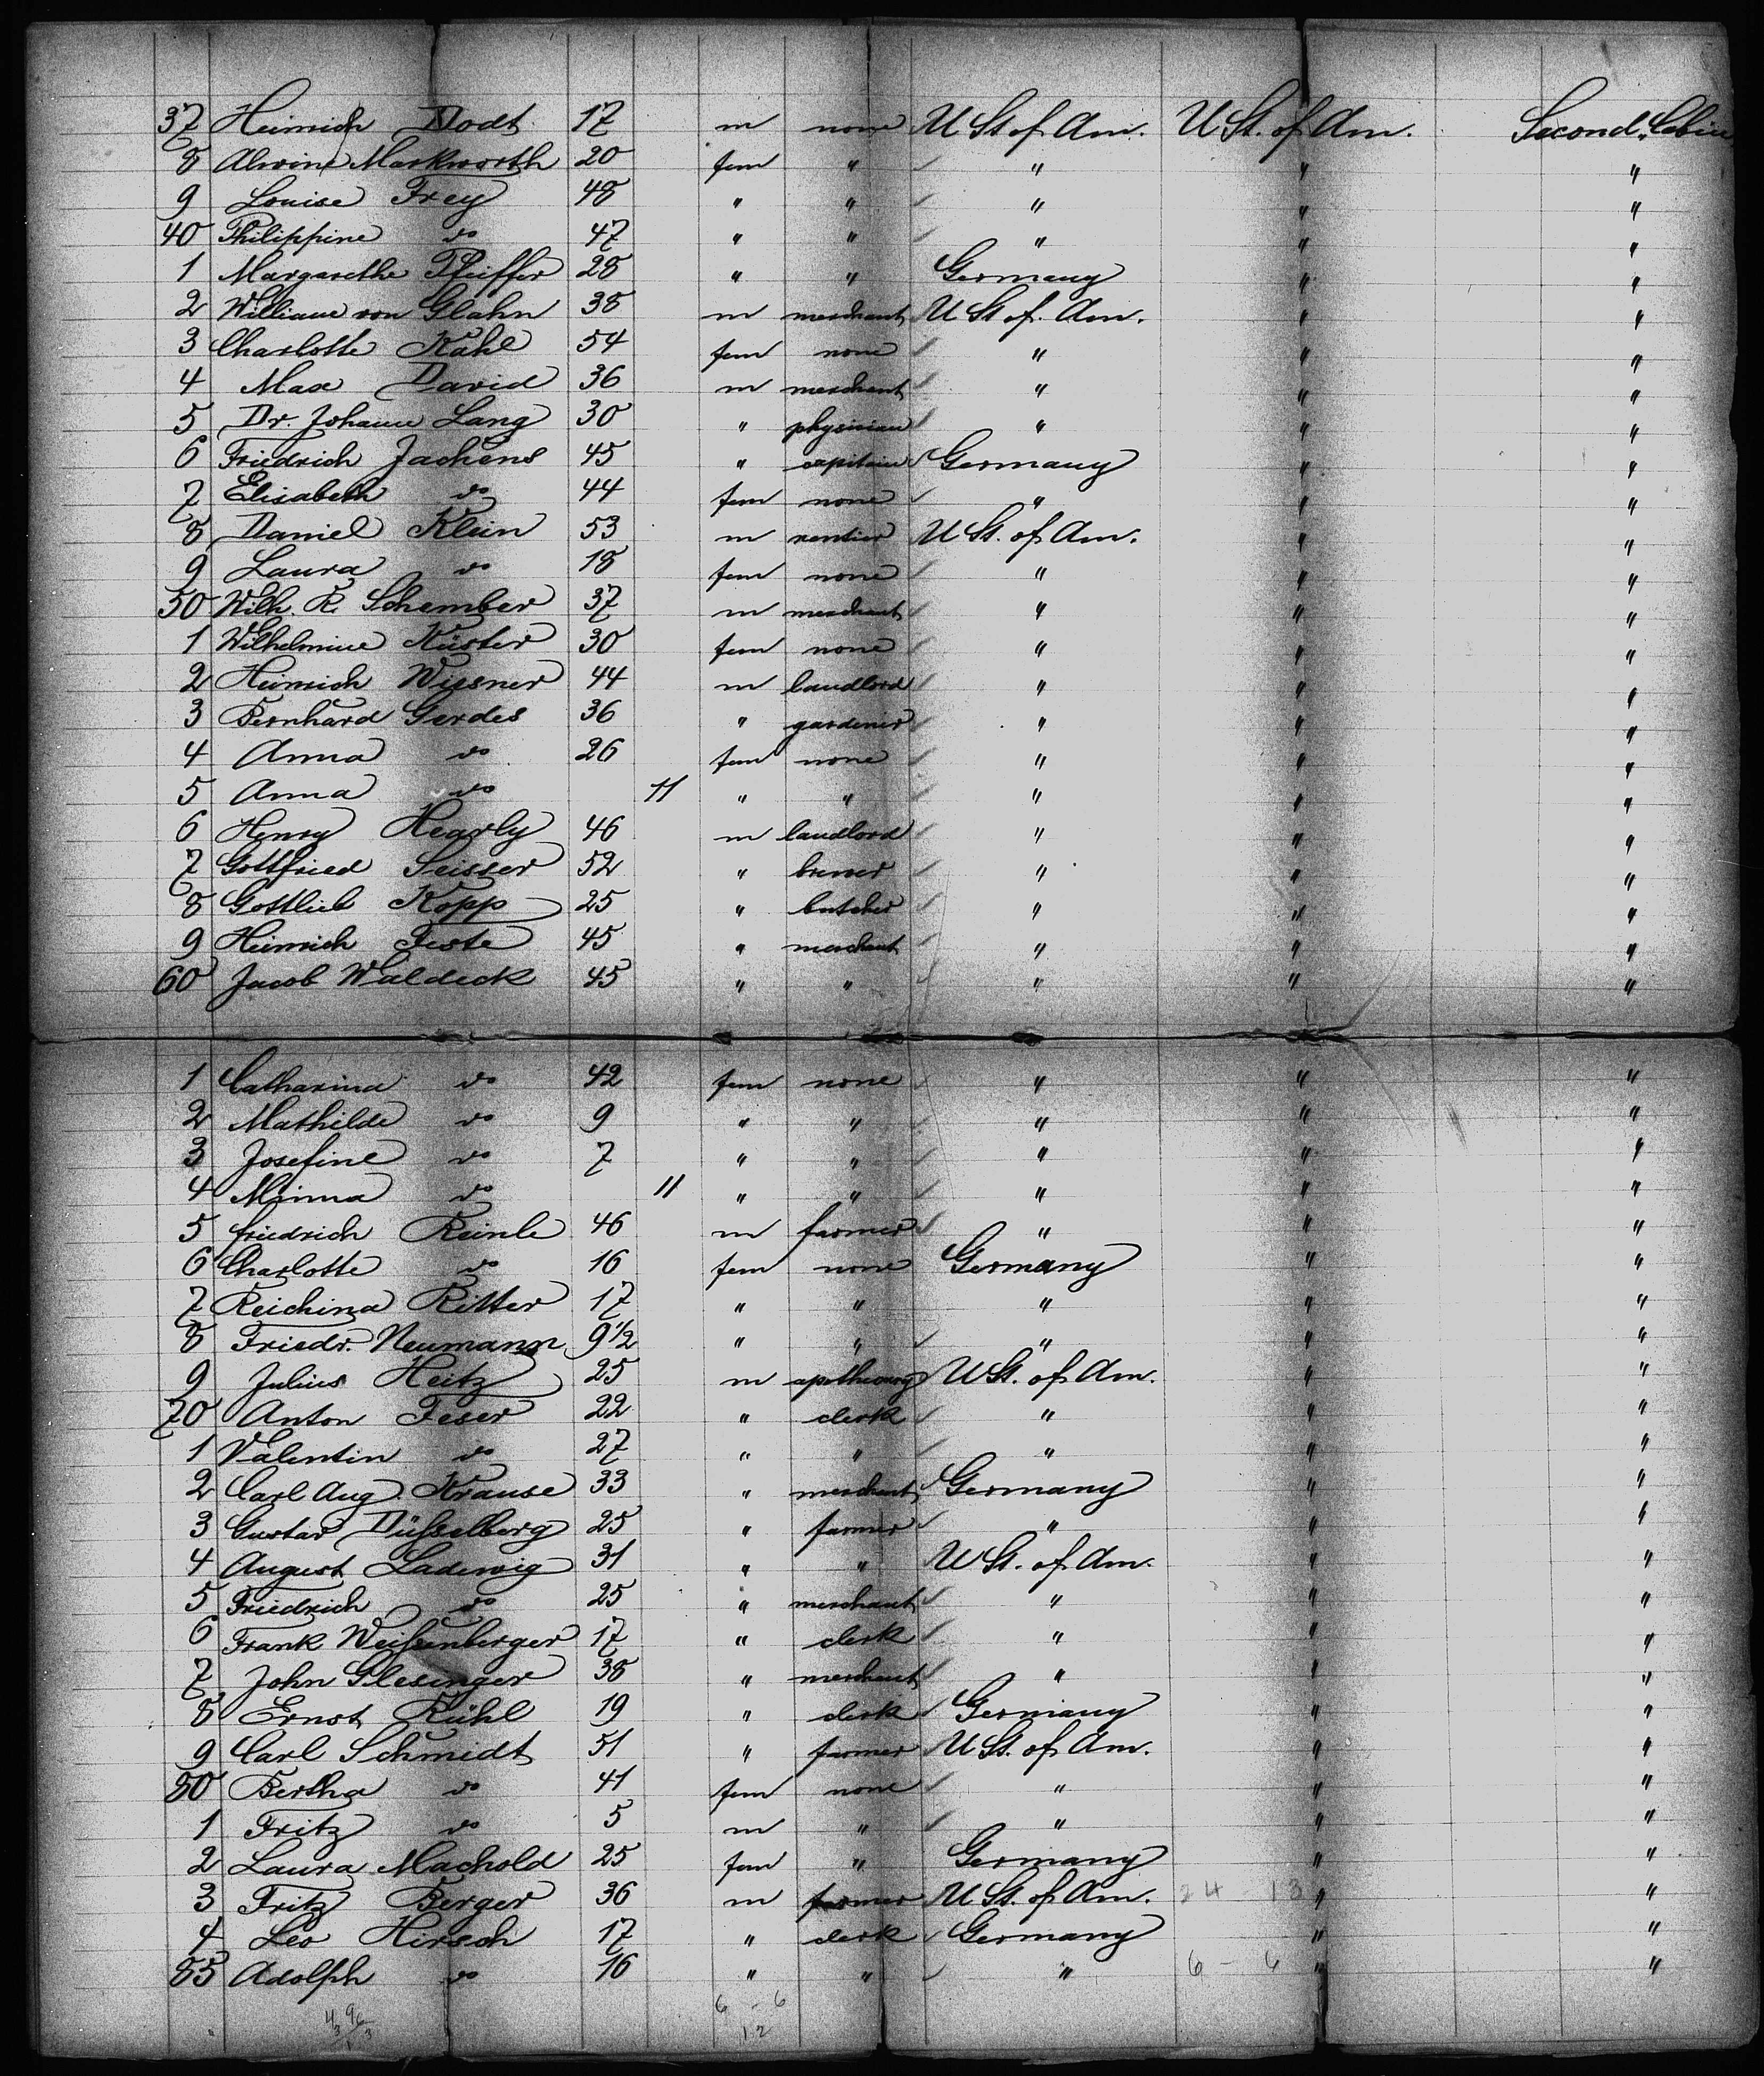 37 Heinrich Dodt 17 m none U St. of Am. U St. of Am. Second Cabin
8 Alwine Markworth 20 fem " " " "
9 Louise Frey 48 " " " " "
40 Philippine do 47 " " " " "
1 Margarethe Pfeiffer 28 " " Germany " "
2 William von Glahn 38 m merchant U St. of Am. " "
3 Charlotte Kahl 54 fem none " " "
4 Max David 36 m merchant " " "
5 Dr. Johann Lang 30 " physician " " "
6 Friedrich Jachens 45 " capitain Germany " "
7 Elisabeth do 44 fem none " " "
8 Daniel Klein 53 m rentier U St. of Am. " "
9 Laura do 18 fem none " " "
50 Wilh. R. Schember 37 m merchant " " "
1 Wilhelmine Küster 30 fem none " " "
2 Heinrich Wysner 44 m landlord " " "
3 Bernhard Gerdes 36 " gardener " " "
4 Anna do 26 fem none " " "
5 Anna do 11 " " " " "
6 Henry Hegrly 46 m landlord " " "
7 Gottfried Seisser 52 " brewer " " "
8 Gottlieb Kopp 25 " butcher " " "
9 Heinrich Feste 45 " merchant " " "
60 Jacob Waldeck 45 " " " " "
1 Catharina do 42 fem none " " "
2 Mathilde do 9 " " " " "
3 Josefine do 7 " " " " "
4 Minna do 11 " " " " "
5 Friedrich Reinle 46 m farmer " " "
6 Charlotte do 16 fem none Germany " "
7 Reichina Ritter 17 " " " " "
8 Friedr. Neumann 9 1/2 " " " " "
9 Julius Heitz 25 m apothecary U St. of Am. " "
70 Anton Feser 22 " clerk " " "
1 Valentin do 27 " " " " "
2 Carl Aug. Krause 33 " merchant Germany " "
3 Gustav Düsselberg 25 " farmer " " "
4 August Ladewig 31 " " U St. of Am. " "
5 Friedrich do 25 " merchant " " "
6 Frank Weißenberger 17 " clerk " " "
7 John Glesinger 38 " merchant " " "
8 Ernst Kühl 19 " clerk Germany " "
9 Carl Schmidt 51 " farmer U St. of Am. " "
80 Bertha do 41 fem none " " "
1 Fritz do 5 m " " " "
2 Laura Machold 25 fem " Germany " "
3 Fritz Berger 36 m farmer U St. of Am. 24 - 13 " "
4 Leo Hirsch 17 " clerk Germany " "
85 Adolph do 16 " " " 6 - 6 " "
6 - 6
12